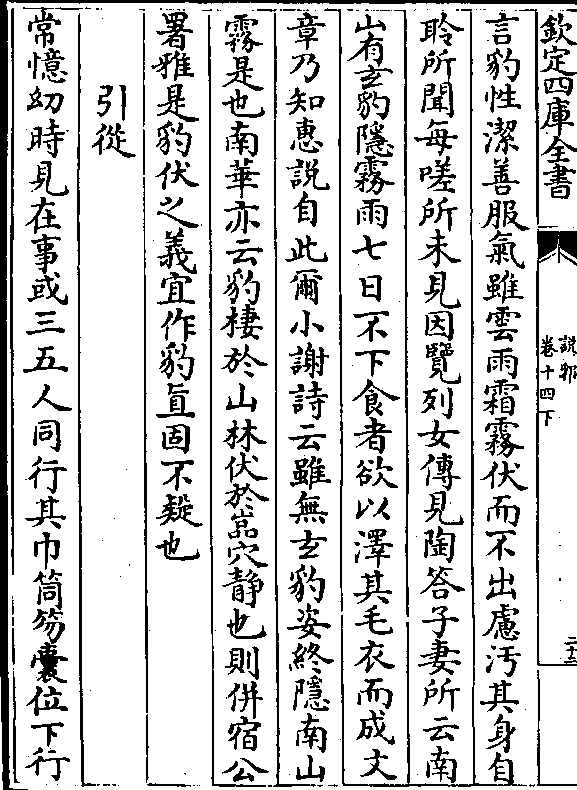 欽定四庫全書
說郛
卷十四下
言豹性潔善服氣雖雲雨霜霧伏而不出慮汚其身自
聆所聞每嗟所未見因覽列女傳見陶答子妻所云南
山有玄豹隱霧雨七日不下食者欲以澤其毛衣而成文
章乃知惠說自此爾小謝詩云雖無玄豹姿終隱南山
霧是也南華亦云豹棲於山林伏於嵓穴静也則併宿公
署雅是豹伏之義宜作豹直固不疑也
引從
常憶幼時見在事或三五人同行其巾筒笏囊位下行